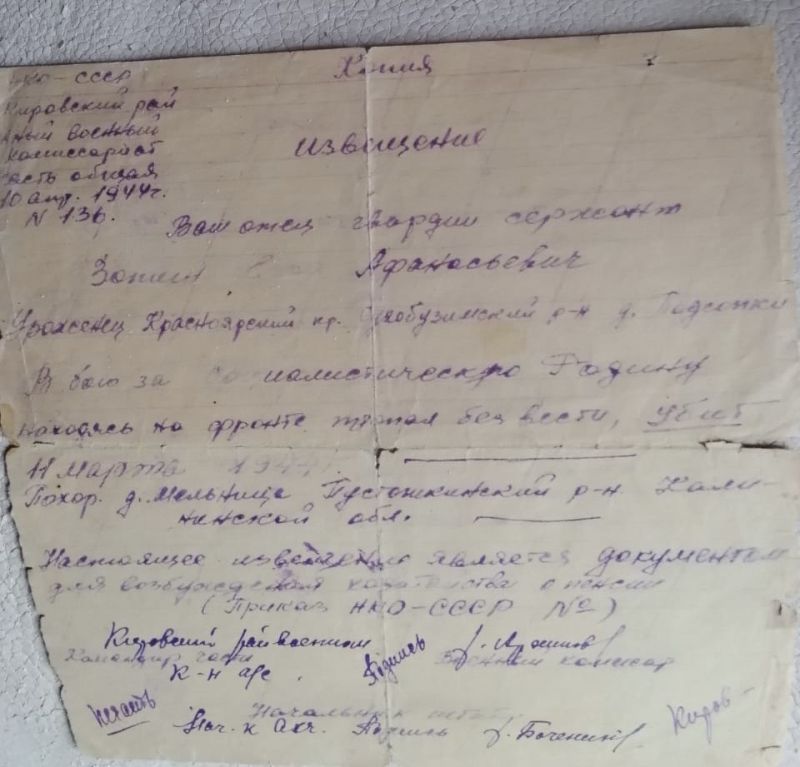 НКО-СССР
Копия
Кировский рай
нный военный
комиссариат
часть общая
10 апр. 1944г.
N 136.
Извещение
Ваш отец гвардии сержант
Зотин Афанасьевич
Уроженец Красноярский кр. Сухобузимский р-н д. Подсопки
В бою за социалистическую Родину
находясь на фронте пропал без вести, убит
11 марта 1944
Похор. д. Мельница Пустошкинский р-н Кали-
нинской обл.
Настоящее извещение является документом
для возбуждения ходатайства о пенсии
(Приказ НКО-СССР №)
Кировский райвоенком
Командир части Военный комиссар
К-н а/с. Подпись
Печать
Начальник штаба
Нач. Подпись
Киров-